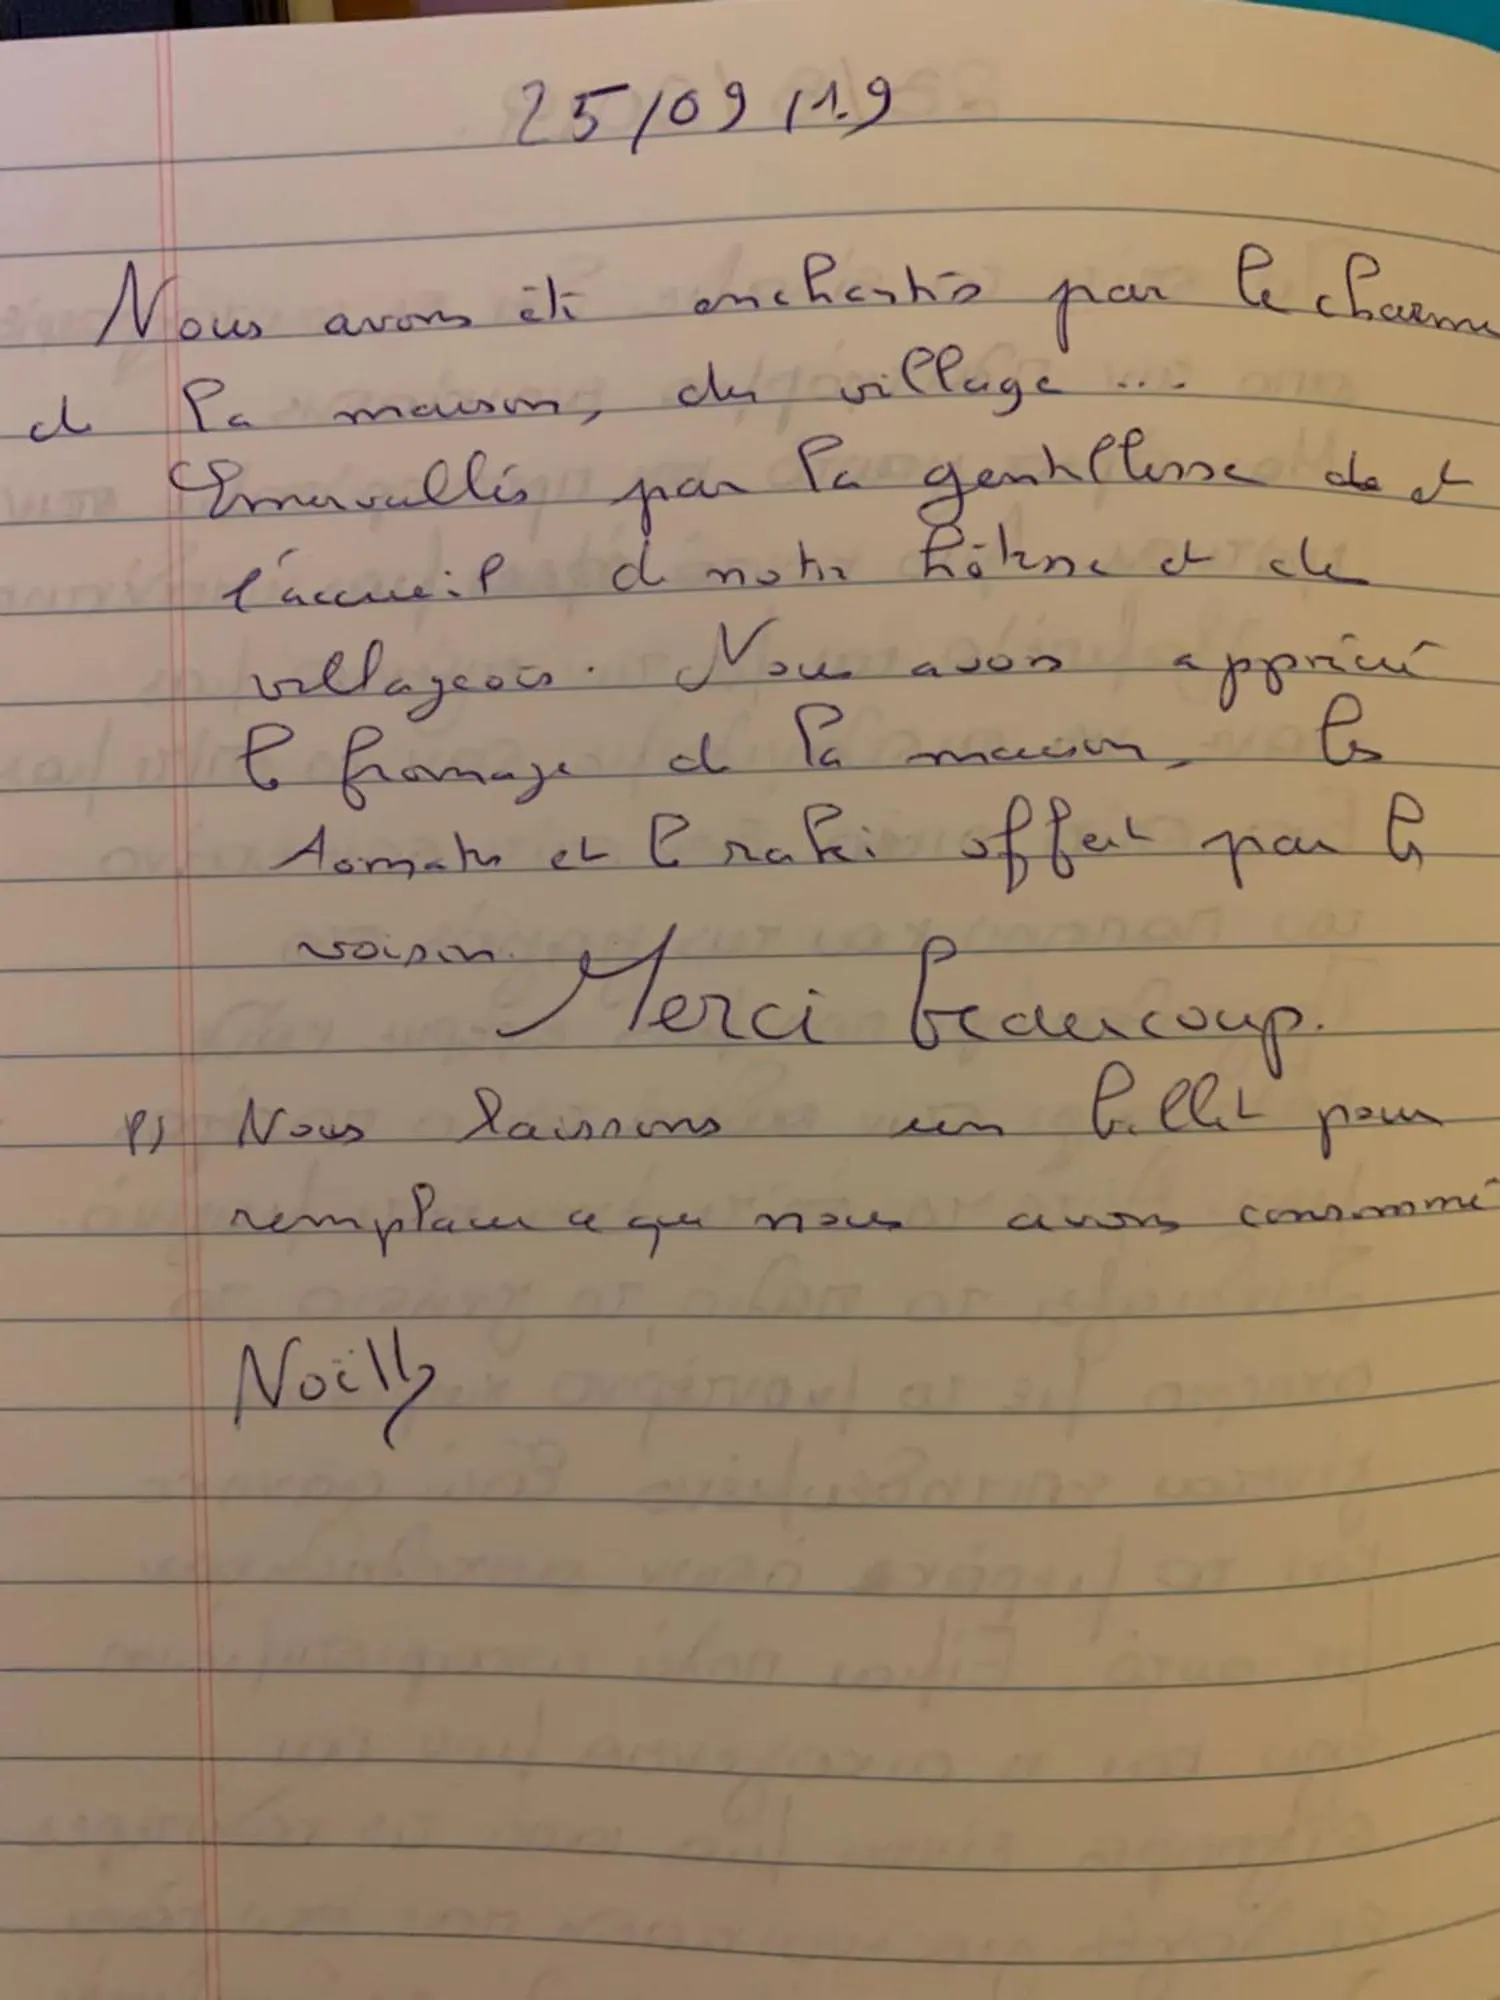 25/09/19
Nous avons été enchantés par le charme
de la maison, du village ...
Émerveillés par la gentillesse de et
l'accueil de notre hôtesse et de
villageois. Nous avons apprécié
le fromage de la maison, les
tomates et le raki offert par le
voisin. Merci beaucoup.
PS Nous laissons un billet pour
remplacer ce que nous avons consommé
Noëlly